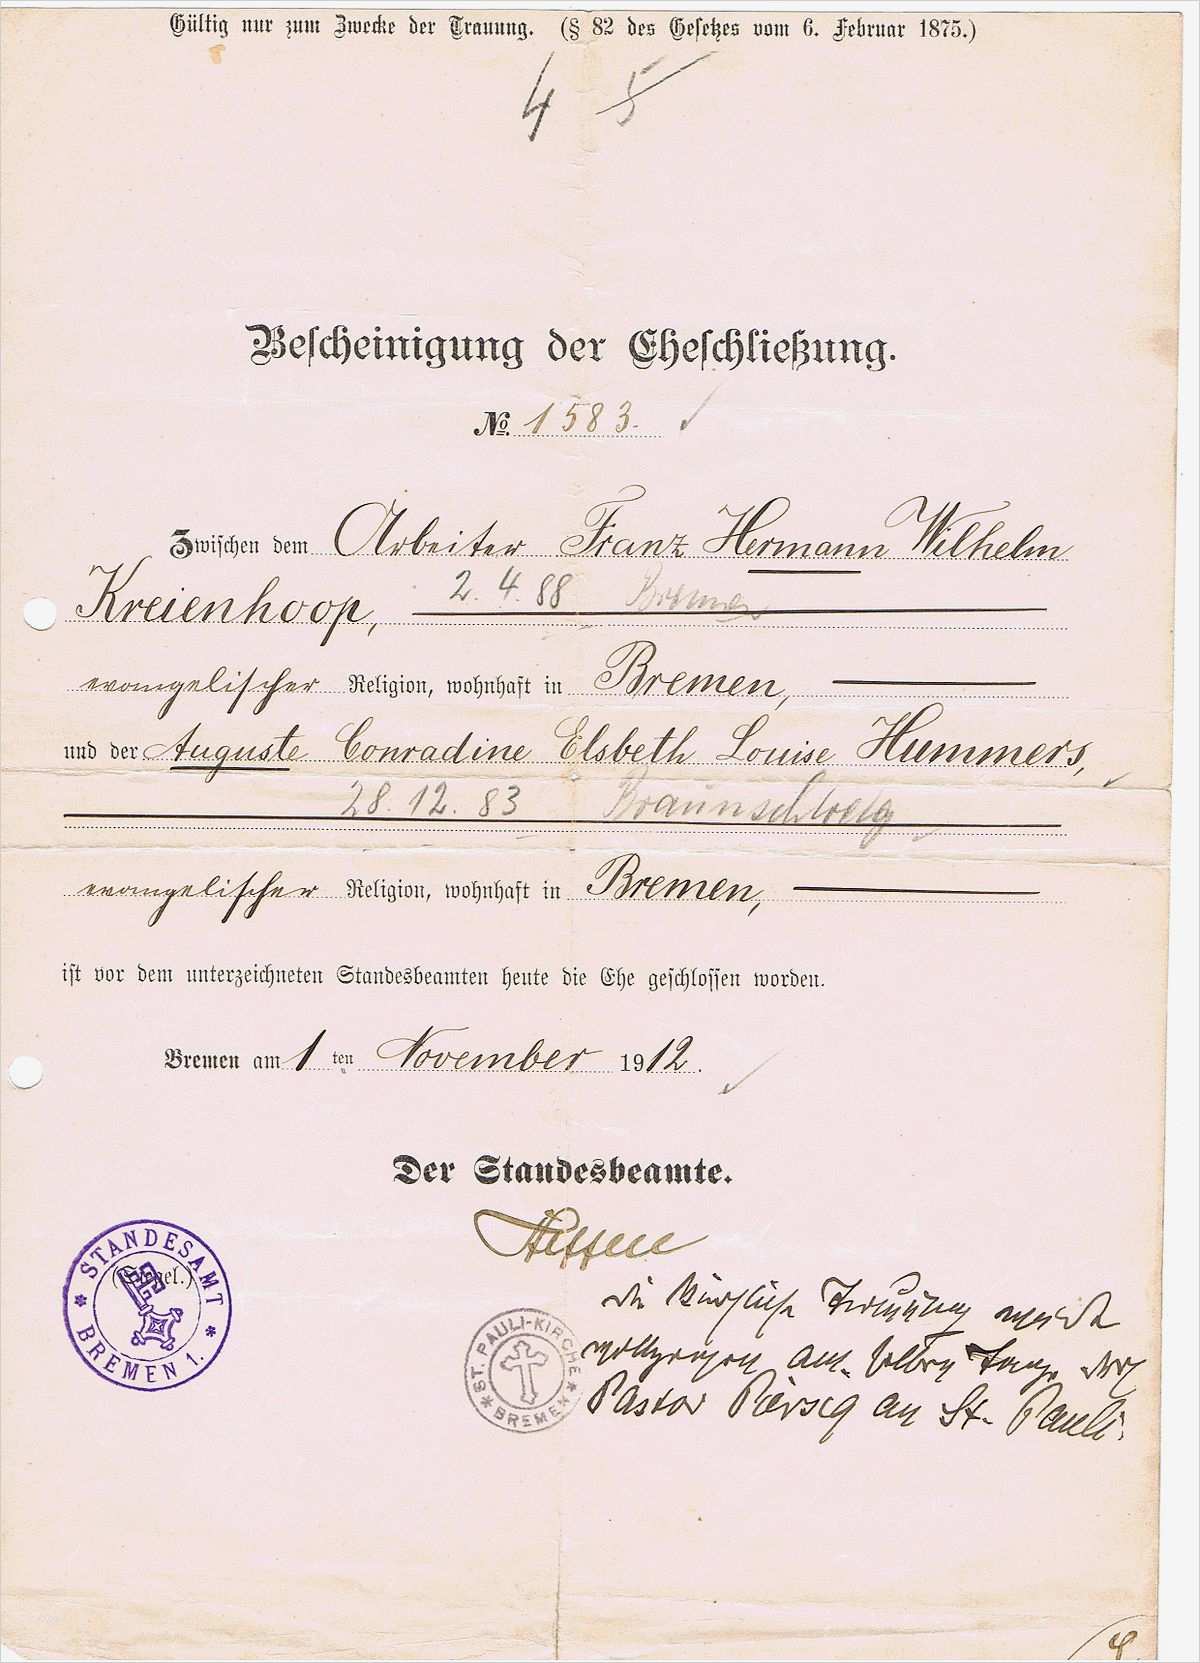 Gültig nur zum Zwecke der Trauung. (§ 82 des Gesetzes vom 6. Februar 1875.)
4 5
Bescheinigung der Eheschließung.
No. 1583.
Zwischen dem Arbeiter Franz Hermann Wilhelm
2. 4. 88 Bremen
Kreienhoop,
evangelischer Religion, wohnhaft in Bremen,
und der Auguste Conradine Elsbeth Louise Hummers,
28. 12. 83 Braunschweig
evangelischer Religion, wohnhaft in Bremen,
ist vor dem unterzeichneten Standesbeamten heute die Ehe geschlossen worden.
Bremen am 1 ten November 1912.
Der Standesbeamte.
STANDESAMT BREMEN 1.
(Siegel.)
die kirchliche Trauung wurde
vollzogen am selben Tage durch
ST. PAULI-KIRCHE BREMEN
Pastor an St. Pauli.